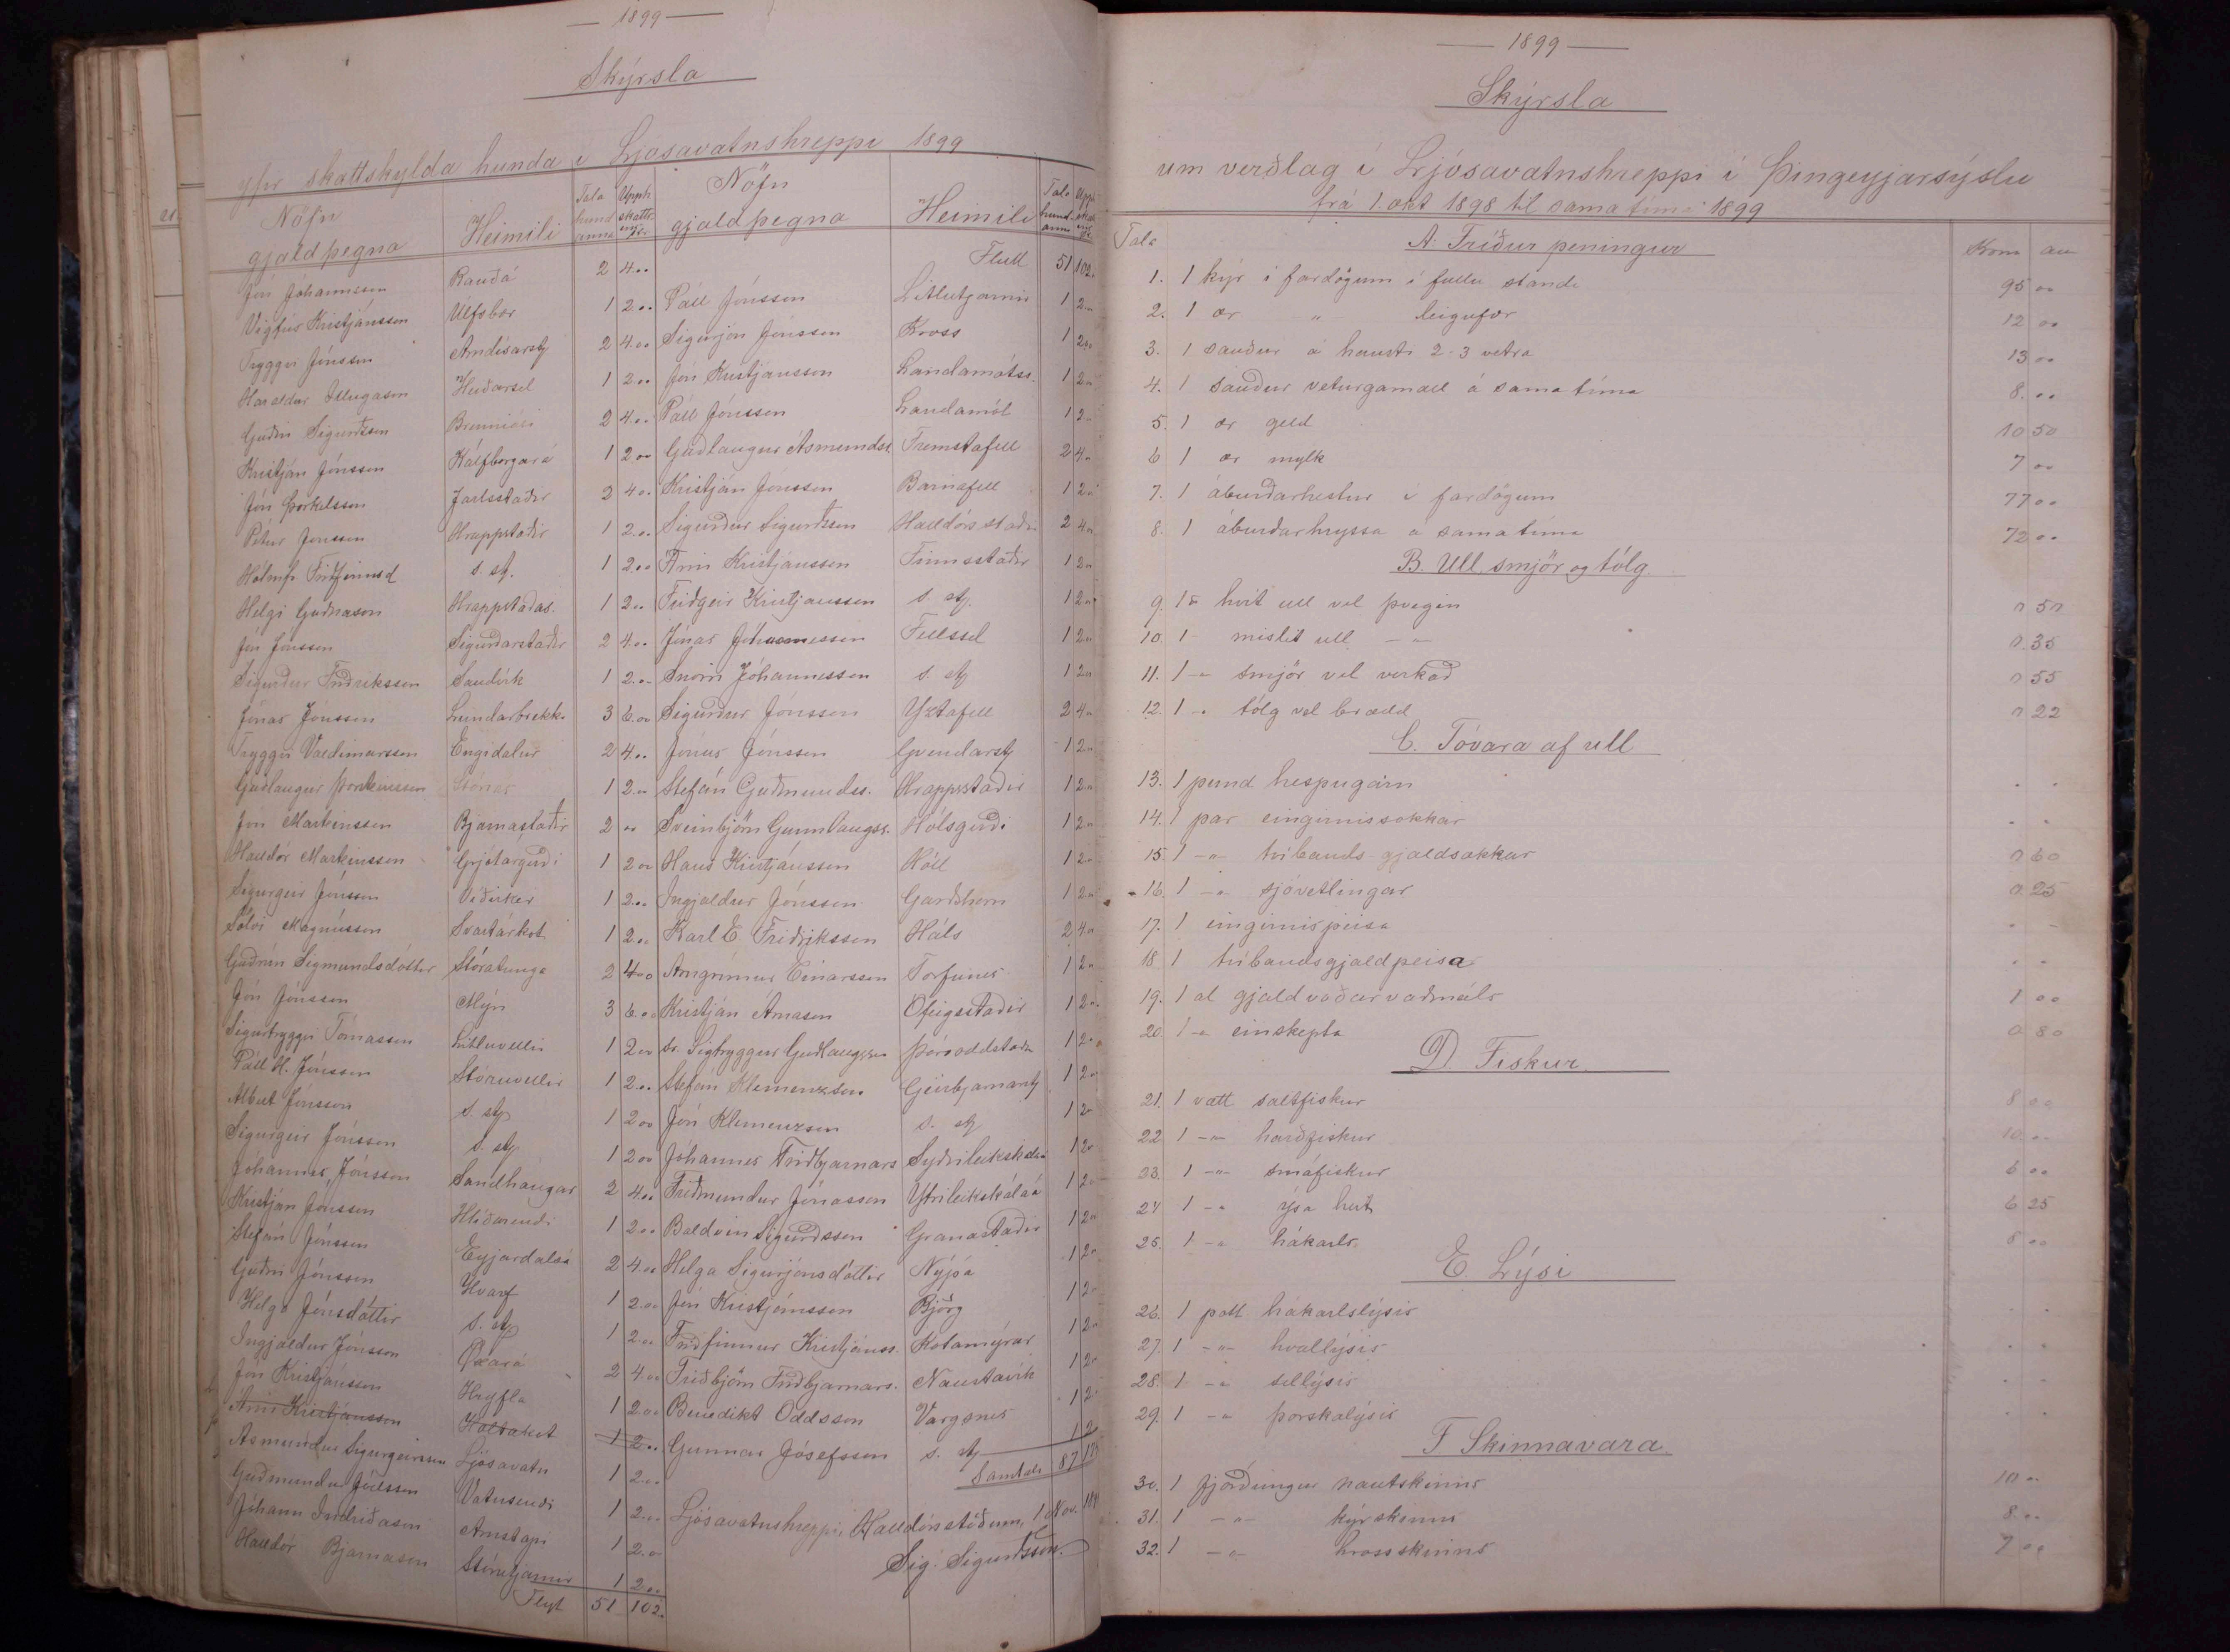 — 1899 —
Skýrsla
yfir skattskylda hunda í Ljósavatnshreppi 1899
Nöfn gjaldþegna | Heimili | Tala hundanna | Upph. skatts
Jón Jóhannesson | Rauðá | 2 | 4.00
Vigfús Kristjánsson | Úlfsbær | 1 | 2.00
Tryggvi Jónsson | Arndísarst | 2 | 4.00
Haraldur Illugason | Heiðarsel | 1 | 2.00
Guðni Sigurðsson | Brunnási | 2 | 4.00
Kristján Jónsson | Kálfborgará | 1 | 2.00
Jón Þorkelsson | Jarlsstaðir | 2 | 4.00
Pétur Jónsson | Hrappstaðir | 1 | 2.00
Hólmfr. Friðfinnsd | s. st. | 1 | 2.00
Helgi Guðnason | Hrappstaðas. | 1 | 2.00
Jón Jónsson | Sigurðarstaðir | 2 | 4.00
Sigurður Friðriksson | Sandvík | 1 | 2.00
Jónas Jónsson | Lundarbrekka | 3 | 6.00
Tryggvi Valdimarsson | Engidalur | 2 | 4.00
Guðlaugur Þorsteinsson | Stórás | 1 | 2.00
Jón Marteinsson | Bjarnastaðir | 2 | 00
Halldór Marteinsson | Grjótárgerði | 1 | 2 00
Sigurgeir Jónsson | Víðirker | 1 | 2.00
Sölvi Magnússon | Svartárkot | 1 | 2.00
Guðrún Sigmundsdóttir | Stóratunga | 2 | 4.00
Jón Jónsson | Mýri | 3 | 6.00
Sigurtryggvi Tómasson | Litluvellir | 1 | 2.00
Páll H. Jónsson | Stóruvellir | 1 | 2.00
Albert Jónsson | s. st. | 1 | 2.00
Sigurgeir Jónsson | s. st. | 1 | 2.00
Jóhannes Jónsson | Sandhaugar | 2 | 4.00
Kristján Jónsson | Hlíðarendi | 1 | 2.00
Stefán Jónsson | Eyjardalsá | 2 | 4.00
Guðni Jónsson | Hvarf | 1 | 2.00
Helga Jónsdóttir | s. st. | 1 | 2.00
Ingjaldur Jónsson | Öxará | 2 | 4.00
Jón Kristjánsson | Hryfla | 1 | 2.00
Árni Kristjánsson | Holtakot | 1 | 2.00
Ásmundur Sigurgeirsson | Ljósavatn | 1 | 2.00
Guðmundur Jóelsson | Vatnsendi | 1 | 2.00
Jóhann Indriðason | Arnstapi | 1 | 2.00
Halldór Bjarnason | Stórutjarnir | 1 | 2.00
Flyt | 51 | 102.
Nöfn gjaldþegna | Heimili | Tala hundanna
Flutt | 51 | 102.
Páll Jónsson | Litlutjarnir | 1 | 2.00
Sigurjón Jónsson | Kross | 1 | 2.00
Jón Kristjánsson | Landamótss. | 1 | 2.00
Páll Jónsson | Landamót | 1 | 2.00
Guðlaugur Ásmundss. | Fremstafell | 2 | 4.00
Kristján Jónsson | Barnafell | 1 | 2.00
Sigurður Sigurðsson | Halldórsstaðir | 2 | 4.00
Árni Kristjánsson | Finnsstaðir | 1 | 2.00
Friðgeir Kristjánsson | s. st. | 1 | 2.00
Jónas Jóhannesson | Fellssel | 1 | 2.00
Snorri Jóhannesson | s. st. | 1 | 2.00
Sigurður Jónsson | Yztafell | 2 | 4.00
Jónas Jónsson | Gvendarst | 1 | 2.00
Stefán Guðmundss. | Hrappstaðir | 1 | 2.00
Sveinbjörn Gunnlaugss. | Hólsgerði | 1 | 2.00
Hans Kristjánsson | Hóll | 1 | 2.00
Ingjaldur Jónsson | Garðshorn | 1 | 2.00
Karl E. Friðriksson | Háls | 2 | 4.00
Arngrímur Einarsson | Torfunes | 1 | 2.00
Kristján Árnason | Ófeigsstaðir | 1 | 2.00
sr. Sigtryggur Guðlaugsson | Þóroddstaður | 1 | 2.00
Stefán Klemenzson | Geirbjarnarst | 1 | 2.00
Jón Klemenzson | s. st | 1 | 2.00
Jóhannes Friðbjarnars | Syðrileikskálaá | 1 | 2.00
Friðmundur Jónasson | Ytrileikskálaá | 1 | 2.00
Baldvin Sigurðsson | Granastaðir | 1 | 2.00
Helga Sigurjónsdóttir | Nýpá | 1 | 2.00
Jón Kristjánsson | Björg | 1 | 2.00
Friðfinnur Kristjánss. | Kotamýrar | 1 | 2.00
Friðbjörn Friðbjarnars. | Naustavík | 1 | 2.00
Benedikt Oddsson | Vargsnes | 1 | 2.00
Gunnar Jósefsson | s. st. | 1 | 2
Samtals | 87
Ljósavatnshreppi, Halldórsstöðum, 1 Nov.
Sig. Sigurðsson.
— 1899 —
Skýrsla
um verðlag í Ljósavatnshreppi í Þingeyjarsýslu
frá 1. okt 1898 til sama tíma 1899
Tala | A. Fríður peningur | Krón | au
1. 1 kýr í fardögum í fullu standi | 95 00
2. 1 ær — " — leigufær | 12 00
3. 1 sauður á hausti 2-3 vetra | 13 00
4. 1 sauður veturgamall á sama tíma | 8.00
5. 1 ær geld | 10 50
6 1 ær mylk | 7 00
7. 1 áburðarhestur í fardögum | 77 00
8. 1 áburðarhryssa á sama tíma | 72 00
B. Ull smjör og tólg.
9. 1 ℔ hvít ull vel þvegin | 0 50
10. 1 - mislit ull - " - | 0.35
11. 1 - " smjör vel verkað | 0 55
12. 1 - " tólg vel brædd | 0 22
C. Tóvara af ull
13. 1 pund hespugarn | . .
14. 1 par eingirnissokkar | . .
15. 1 - " - tvíbands-gjaldsokkar | 0 60
16. 1 - " sjóvetlingar | 0 25
17. 1 eingirnispeisa | . -
18 1 tvíbandsgjaldpeisa | . .
19. 1 al gjaldvoðarvaðmáls | 1 00
20. 1 - " einskepta | 0 80
D. Fiskur
21. 1 vætt saltfiskur | 8 00
22 1 - " - harðfiskur | 10.00
23. 1 - " - smáfiskur | 6 00
24 1 - " ýsa hert | 6 25
25. 1 - " hákarls | 8 00
E Lýsi
26. 1 pott hákarlslýsis | . .
27. 1 - " - hvallýsis | . .
28. 1 - " sellýsis | . .
29. 1 - " þorskalýsis | . .
F Skinnavara
30. 1 fjórðungur nautskinns | 10 00
31. 1 - " - kýrskinns | 8.00
32. 1 - " - hrossskinns | 7 00